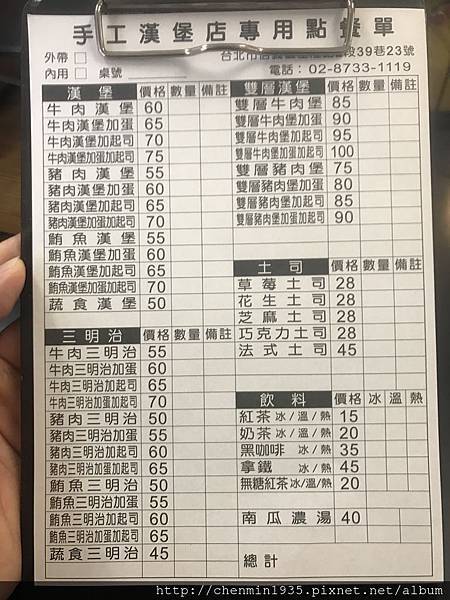 手工漢堡店專用點餐單
外帶
台北市信義區 段39巷23號
內用 桌號
電話：02-8733-1119
漢堡 價格 數量 備註
牛肉漢堡 60
牛肉漢堡加蛋 65
牛肉漢堡加起司 70
牛肉漢堡加蛋加起司 75
豬肉漢堡 55
豬肉漢堡加蛋 60
豬肉漢堡加起司 65
豬肉漢堡加蛋加起司 70
鮪魚漢堡 55
鮪魚漢堡加蛋 60
鮪魚漢堡加起司 65
鮪魚漢堡加蛋加起司 70
蔬食漢堡 50
三明治 價格 數量 備註
牛肉三明治 55
牛肉三明治加蛋 60
牛肉三明治加起司 65
牛肉三明治加蛋加起司 70
豬肉三明治 50
豬肉三明治加蛋 55
豬肉三明治加起司 60
豬肉三明治加蛋加起司 65
鮪魚三明治 50
鮪魚三明治加蛋 55
鮪魚三明治加起司 60
鮪魚三明治加蛋加起司 65
蔬食三明治 45
雙層漢堡 價格 數量 備註
雙層牛肉堡 85
雙層牛肉堡加蛋 90
雙層牛肉堡加起司 95
雙層牛肉堡加蛋加起司 100
雙層豬肉堡 75
雙層豬肉堡加蛋 80
雙層豬肉堡加起司 85
雙層豬肉堡加蛋加起司 90
土司 價格 數量 備註
草莓土司 28
花生土司 28
芝麻土司 28
巧克力土司 28
法式土司 45
飲料 價格 冰 溫 熱
紅茶 冰/溫/熱 15
奶茶 冰/溫/熱 20
黑咖啡 冰/熱 35
拿鐵 冰/熱 45
無糖紅茶 冰/溫/熱 20
南瓜濃湯 40
總計
http://chenmin1935.pixnet.net/album